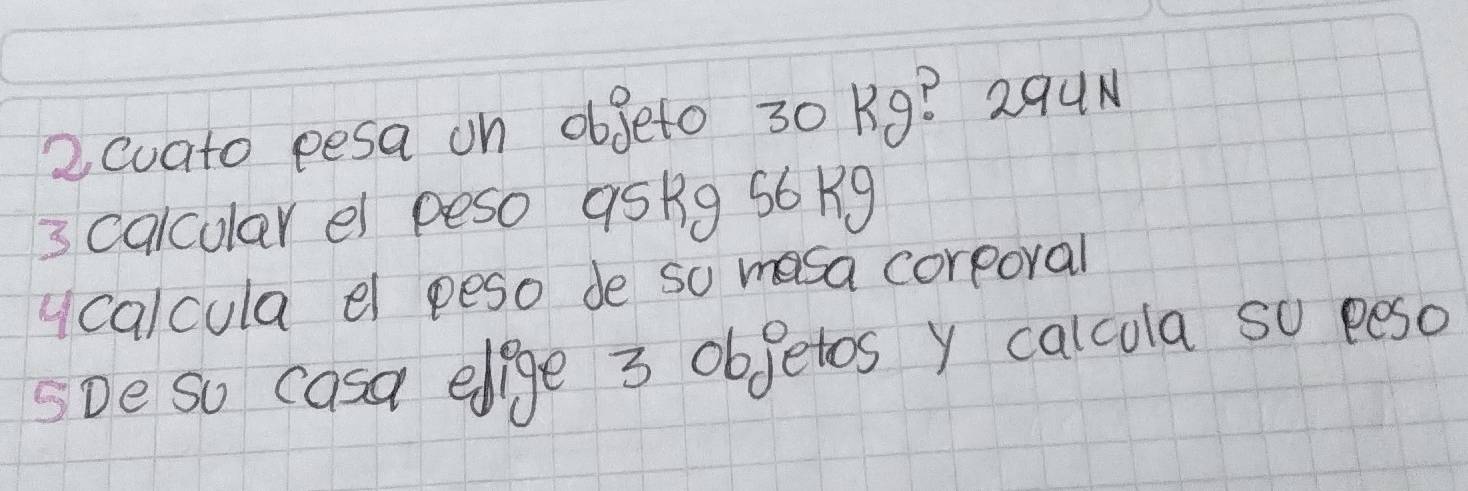 2 cuato pesa un objeto 30 Kg? 294N
3 calcular el peso 95Kg 56 Kg
4 calcula el peso de su masa corporal
5 De su casa elige 3 objetos y calcula su peso